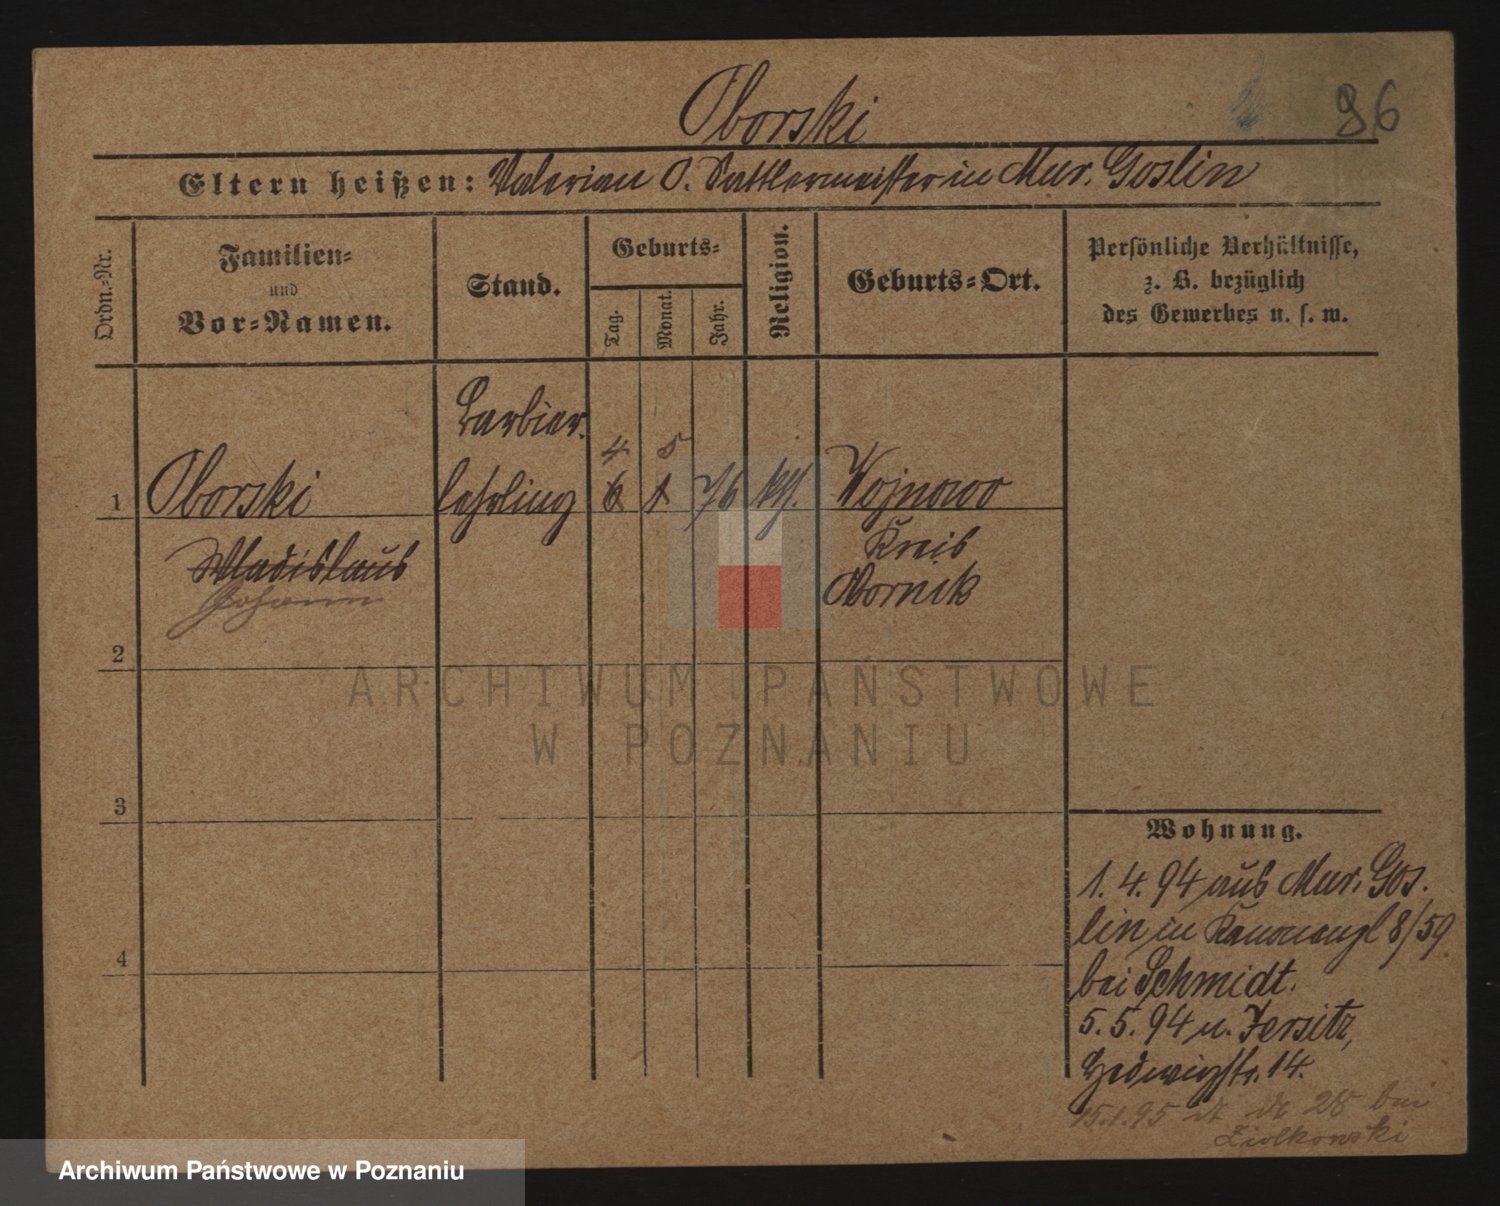 Oborski
96
Eltern heißen: Valerian O. Sattlermeister in Mur. Goslin
Ordn.-Nr.
Familien-
und
Vor-Namen.
Stand.
Geburts-
Tag.
Monat.
Jahr.
Religion.
Geburts-Ort.
Persönliche Verhältnisse,
z. B. bezüglich
des Gewerbes u. s. w.
Barbier.
4 5
1 Oborski lehrling 6 1 76 kth. Wojnowo
Wladislaus Kreis
Johann Obornik
2
3
4
Wohnung.
1. 4. 94 aus Mur. Gos.
lin in Kanonenpl 8/59
bei Schmidt.
5. 5. 94 n. Jersitz,
Hedwigstr. 14.
15.1.95 28 bei
Ziolkowski
ARCHIWUM PAŃSTWOWE
W POZNANIU
Archiwum Państwowe w Poznaniu